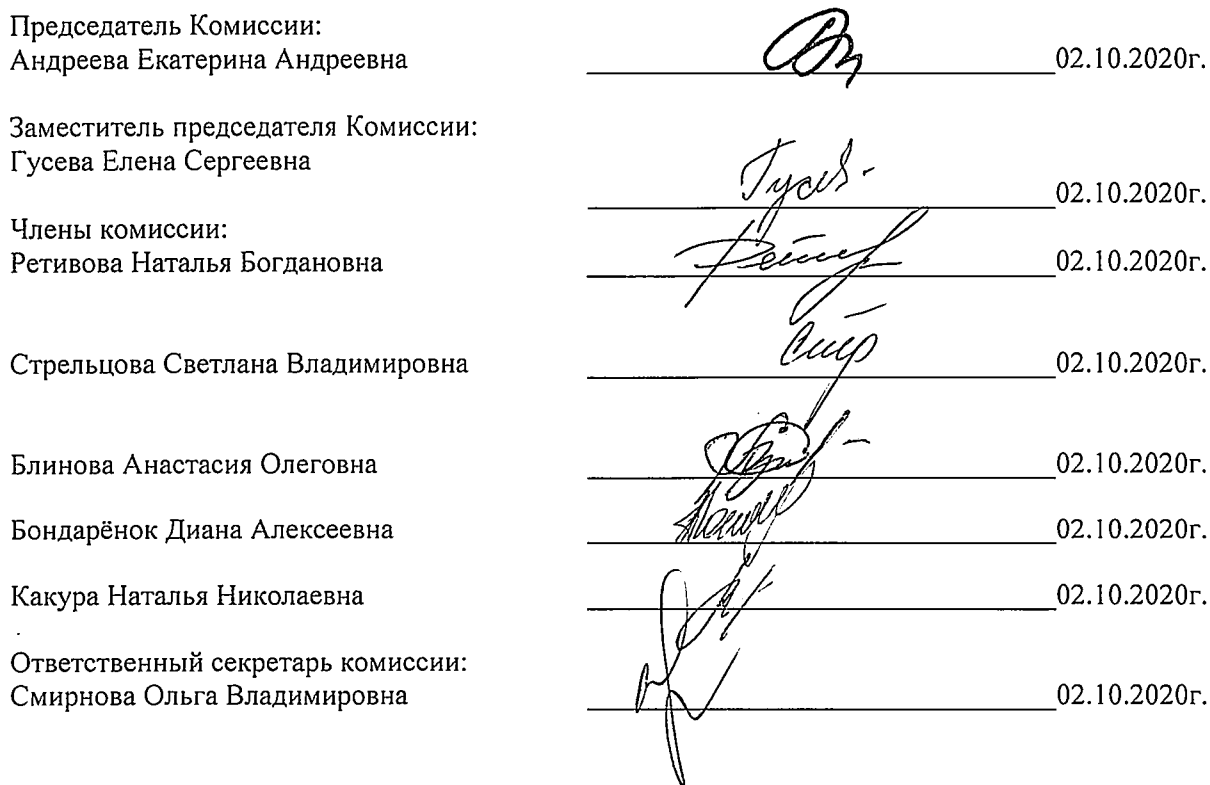 Председатель Комиссии:
Андреева Екатерина Андреевна 02.10.2020г.
Заместитель председателя Комиссии:
Гусева Елена Сергеевна 02.10.2020г.
Члены комиссии:
Ретивова Наталья Богдановна 02.10.2020г.
Стрельцова Светлана Владимировна 02.10.2020г.
Блинова Анастасия Олеговна 02.10.2020г.
Бондарёнок Диана Алексеевна 02.10.2020г.
Какура Наталья Николаевна 02.10.2020г.
Ответственный секретарь комиссии:
Смирнова Ольга Владимировна 02.10.2020г.